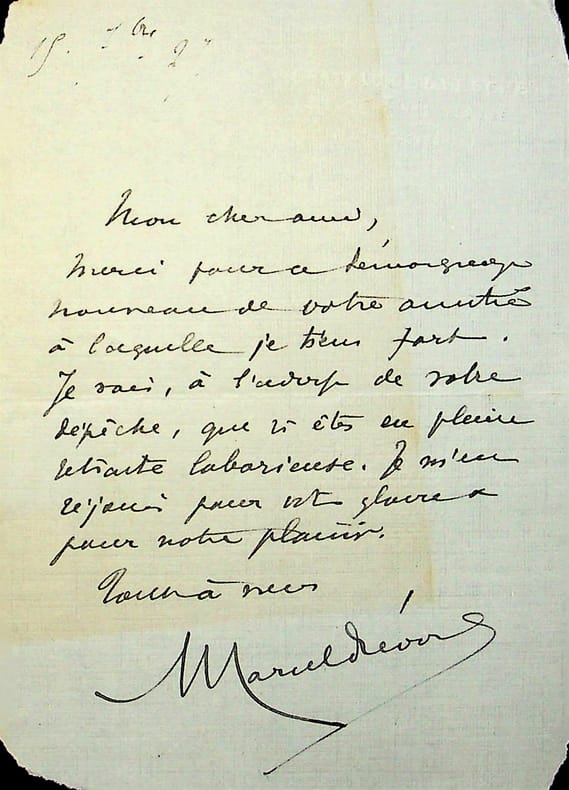 15. 7bre 27
Mon cher ami,
Merci pour ce témoignage
nouveau de votre amitié
à laquelle je tiens fort.
Je vois, à l'adresse de votre
dépêche, que vs êtes en pleine
retraite laborieuse. Je m'en
réjouis pour vot gloire &
pour notre plaisir.
Tout à vous
Marcel Prévost